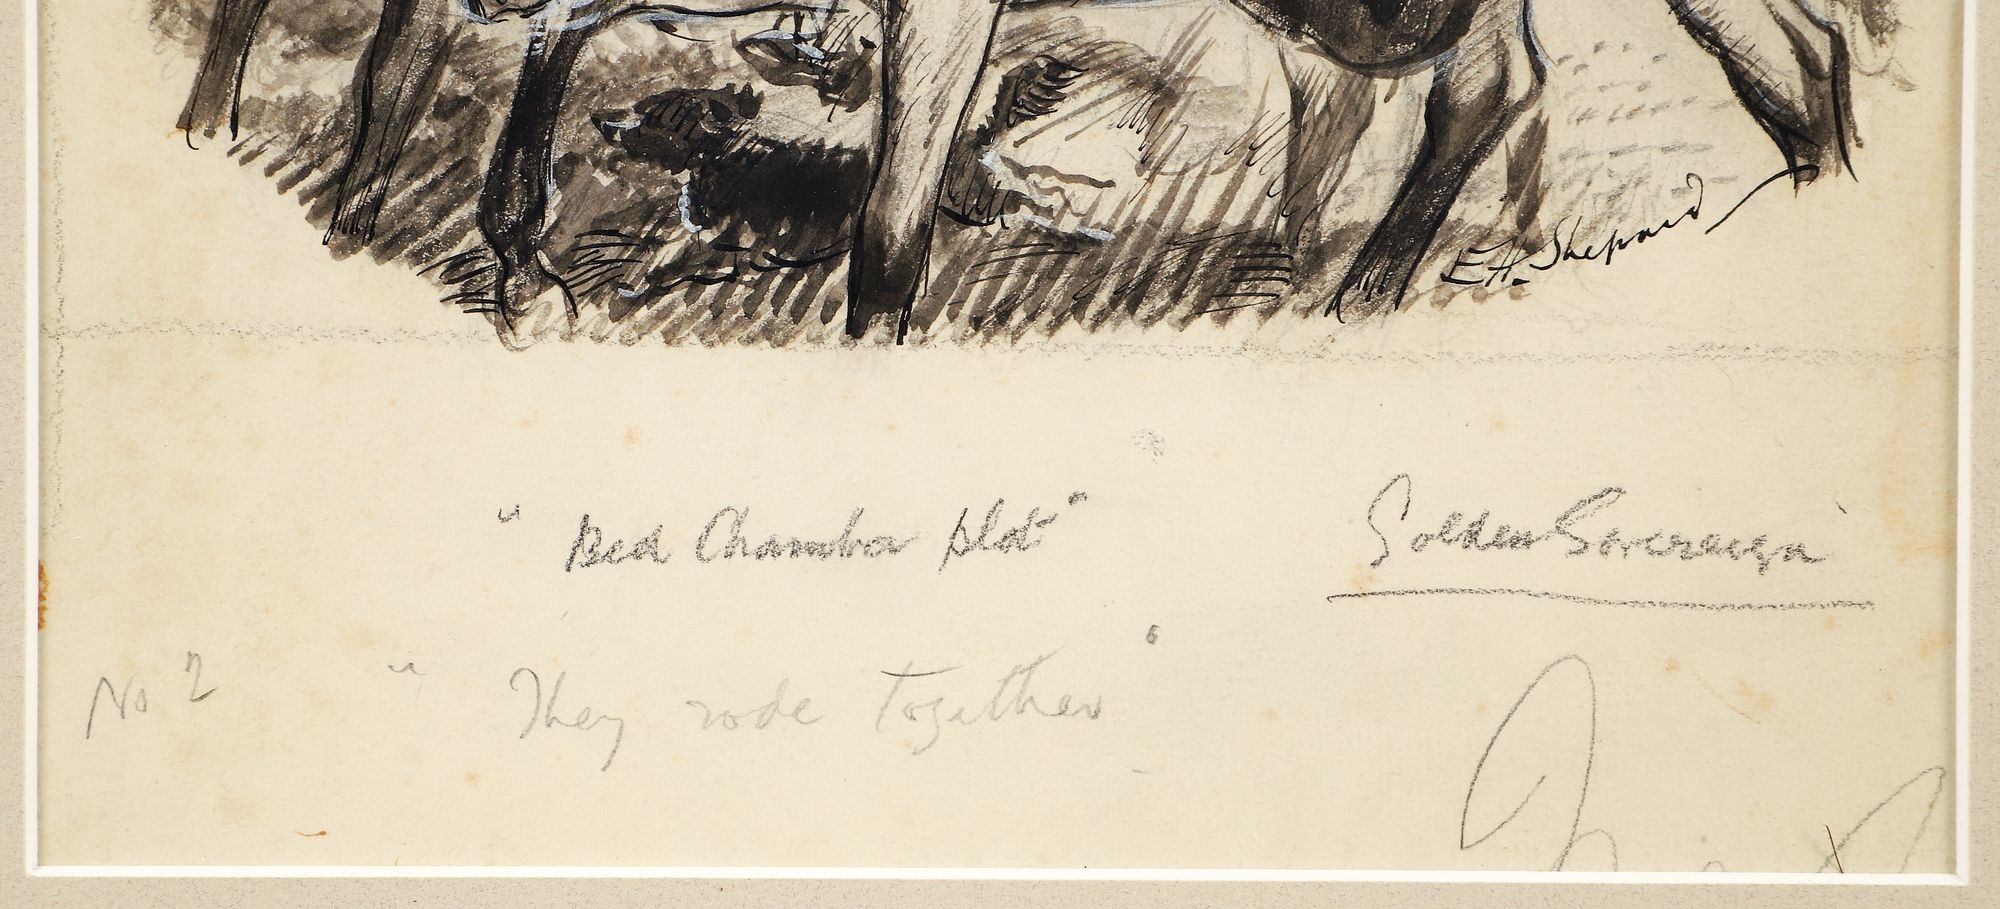 E.H. Shepard
"Bed Chamber plot"
Golden Sovereign
No 2 "They rode together"